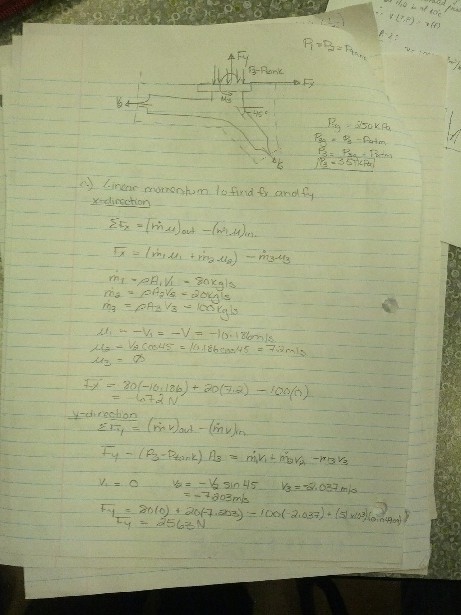 P1 = P2 = Patm
Fy
P3-Patm
Fx
45°
P3g = 250kPa
P3g = P3 - Patm
P3 = P3g + Patm
P3 = 351kPa
Linear momentum to find Fx and Fy
x-direction
ΣFx = (ṁu)out - (ṁu)in
Fx = (ṁ1u1 + ṁ2u2) - ṁ3u3
ṁ1 = ρA1V1 = 80kg/s
ṁ2 = ρA2V2 = 20kg/s
ṁ3 = ρA3V3 = 100kg/s
u1 = -V1 = -V = -10.186m/s
u2 = V2cos45 = 10.186cos45 = 7.2m/s
u3 = 0
Fx = 80(-10.186) + 20(7.2) - 100(0)
= -672N
y-direction
ΣFy = (ṁv)out - (ṁv)in
Fy - (P3-Patm)A3 = ṁ1V1 + ṁ2V2 - ṁ3V3
V1 = 0 V2 = -V2 sin45 V3 = -2.037m/s
= -7.203m/s
Fy = 80(0) + 20(-7.203) - 100(-2.037) +
Fy = 2563N